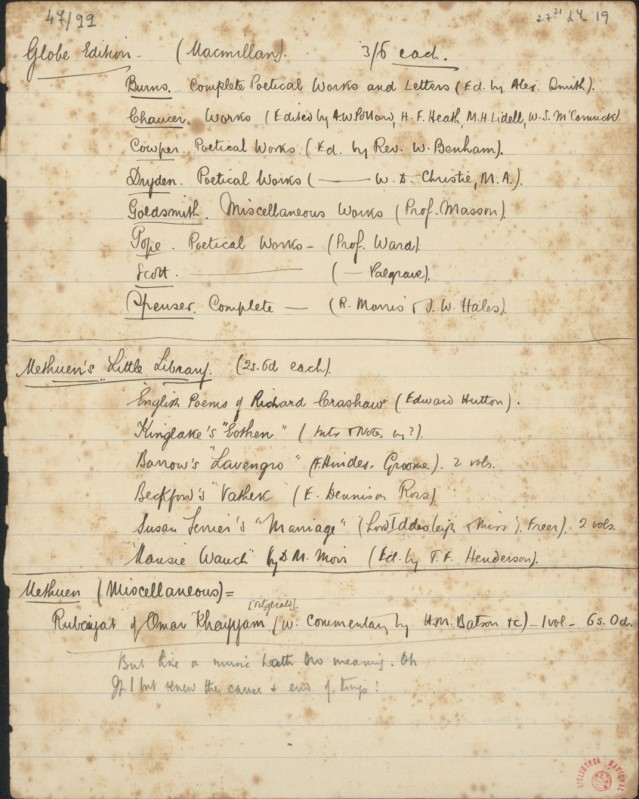 47/99
Globe Edition. (Macmillan). 3/6 each.
Burns. Complete Poetical Works and Letters (Ed. by Alex. Smith).
Chaucer. Works (Edited by A.W. Pollard, H.F. Heath, M.H. Lidell, W.S. McCormick)
Cowper. Poetical Works. (Ed. by Rev. W. Benham).
Dryden. Poetical Works (—— W. D. Christie, M.A.).
Goldsmith. Miscellaneous Works (Prof. Masson).
Pope. Poetical Works — (Prof. Ward)
Scott. ———— (— Palgrave).
Spenser. Complete — (R. Morris & J. W. Hales).
Methuen's "Little Library. (2s. 6d each).
English Poems of Richard Crashaw (Edward Hutton).
Kinglake's "Eothen" (Intr. & Notes, by?).
Borrow's "Lavengro" (F. Hindes. Groome). 2 vols.
Beckford's "Vathek" (E. Dennison Ross).
Susan Ferrier's "Marriage" (Lord Iddesleigh & Miss Freer). 2 vols.
"Mansie Wauch" by D. M. Moir (Ed. by T. F. Henderson).
Methuen (Miscellaneous) =
[Fitzgerald].
Rubaiyat of Omar Khayyam (w. Commentary by H.M. Batson &c) — 1 vol — 6s. 0d.
But like a music hath no meaning. Oh
If I but knew the cause & end of things!